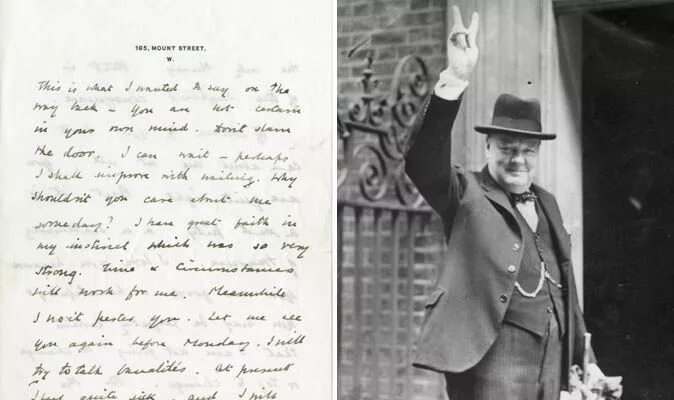 105, MOUNT STREET,
W.
This is what I wanted to say on the
way back – you are not certain
in your own mind. Don't slam
the door. I can wait – perhaps
I shall improve with waiting. Why
shouldn't you care about me
someday? I have great faith in
my instinct which was so very
strong. Time & Circumstances
will work for me. Meanwhile
I won't pester you. Let me see
you again before Monday. I will
try to talk banalités. At present
I feel quite sick and I will